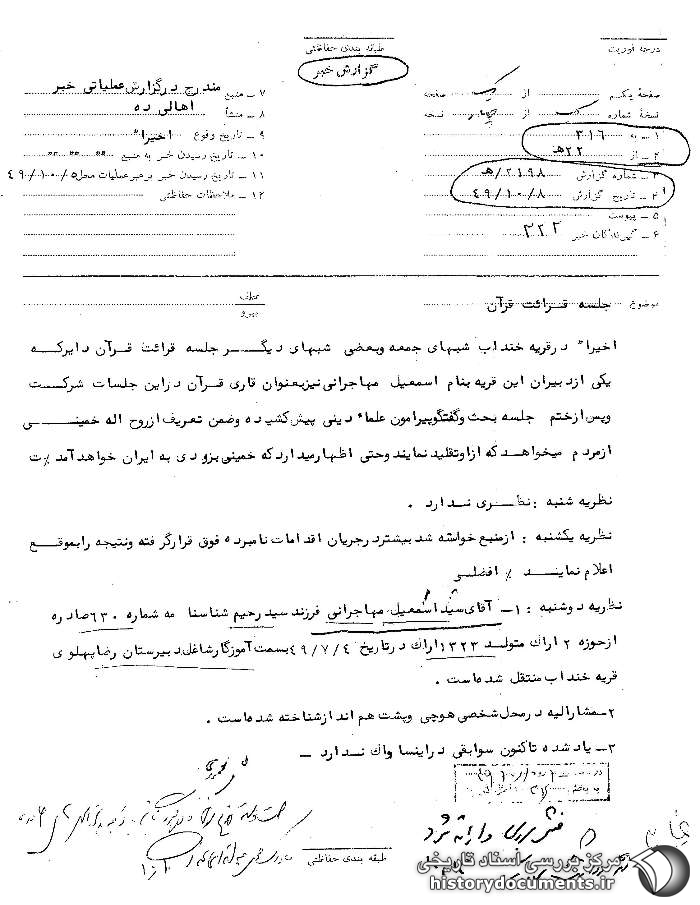 درجه فوریت
طبقه بندی حفاظتی
گزارش خبر
صفحهٔ یکم از یک صفحه
نسخهٔ شماره از نسخه
۱ ـ به ۳۱۶
۲ ـ از ۲۲هـ
۳ ـ شماره گزارش ۲۱۹۸/هـ
۴ ـ تاریخ گزارش ۴۹/۱۰/۸
۵ ـ پیوست
۶ ـ گیرندگان خبر ۳۲۲
۷ ـ منبع مندرج درگزارش عملیاتی خبر
۸ ـ منشأ اهالی ده
۹ ـ تاریخ وقوع اخیراً
۱۰ ـ تاریخ رسیدن خبر به منبع
۱۱ ـ تاریخ رسیدن خبر برهبر عملیات محل ۴۹/۱۰/۵
۱۲ ـ ملاحظات حفاظتی
موضوع جلسه قرائت قرآن
عطف
پیرو
اخیراً درقریه خنداب شبهای جمعه وبعضی شبهای دیگر جلسه قرائت قرآن دایرکه
یکی ازدبیران این قریه بنام اسمعیل مهاجرانی نیزبعنوان قاری قرآن دراین جلسات شرکت
وپس ازختم جلسه بحث وگفتگوپیرامون علماء دینی پیش کشیده وضمن تعریف ازروح اله خمینی
ازمردم میخواهدکه ازاوتقلید نمایند وحتی اظهارمیداردکه خمینی بزودی به ایران خواهدآمد٪ت
نظریه شنبه : نظری ندارد .
نظریه یکشنبه : ازمنبع خواسته شد بیشتردرجریان اقدامات نامبرده فوق قرارگرفته ونتیجه رابموقع
اعلام نماید ٪ افضلی
نظریه دوشنبه : ۱ـ آقای سید اسمعیل مهاجرانی فرزند سیدرحیم شناسنامه شماره ۶۳۰ صادره
ازحوزه ۲ اراک متولد ۱۳۲۳ اراک درتاریخ ۴۹/۷/۴ بسمت آموزگارشاغل دبیرستان رضاپهلوی
قریه خنداب منتقل شده است .
۲ـ مشارالیه درمحل شخصی هوچی وپشت هم اندازشناخته شده است .
۳ـ یادشده تاکنون سوابقی دراینساواک ندارد ـ
طبقه بندی حفاظتی
مرکز بررسی اسناد تاریخی
historydocuments.ir